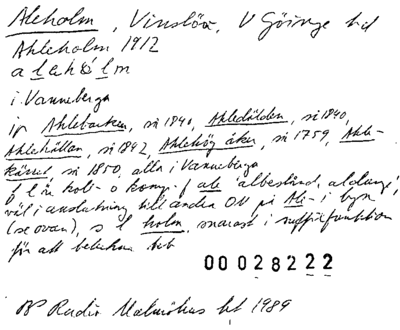 Aleholm, Vinslöv, V Göinge hd
Ahleholm 1912
alehòlm
i Vanneberga
jfr Ahlebacken, sk 1840, Ahledälden, sk 1840,
Ahlehällen, sk 1842, Ahlehög åker, sk 1759, Ahle-
kärret, sk 1850, alla i Vanneberga
f l är koll- o komp.f ale 'albestånd, aldunge',
väl i anslutning till andra ON på Ale- i byn
(se ovan), s l holm, snarast i suffixfunktion
för att beteckna
00028222
Radio Malmöhus 1989